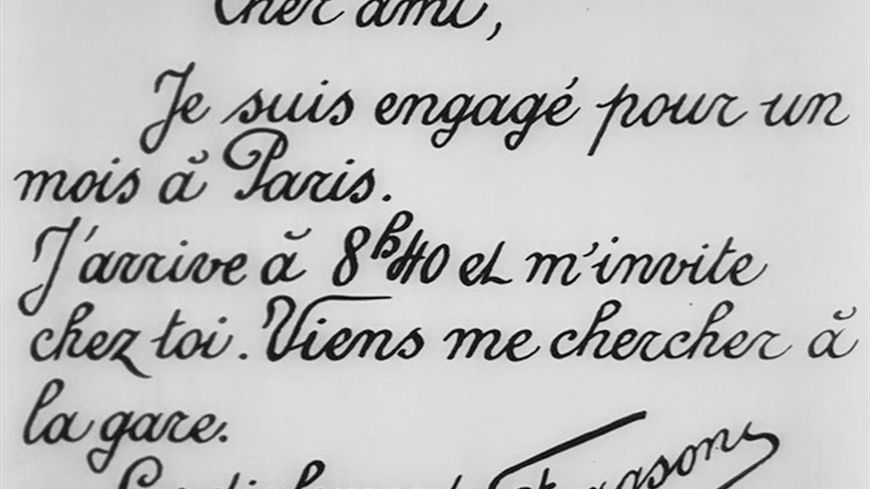 Cher ami,
Je suis engagé pour un
mois à Paris.
J'arrive à 8h40 et m'invite
chez toi. Viens me chercher à
la gare.
Cordialement